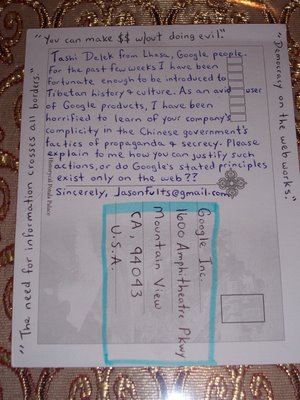 "You can make $$ w/out doing evil."
Tashi Delek from Lhasa, Google people.
For the past few weeks I have been
fortunate enough to be introduced to
Tibetan history & culture. As an avid user
of Google products, I have been
horrified to learn of your company's
complicity in the Chinese government's
tactics of propaganda & secrecy. Please
explain to me how you can justify such
actions, or do Google's stated principles
exist only on the web??
Sincerely, Jasonfults@gmail.com
"Democracy on the web works."
"The need for information crosses all borders."
Potala Palace
Google Inc.
1600 Amphitheatre Pkwy
Mountain View
CA. 94043
U.S.A.